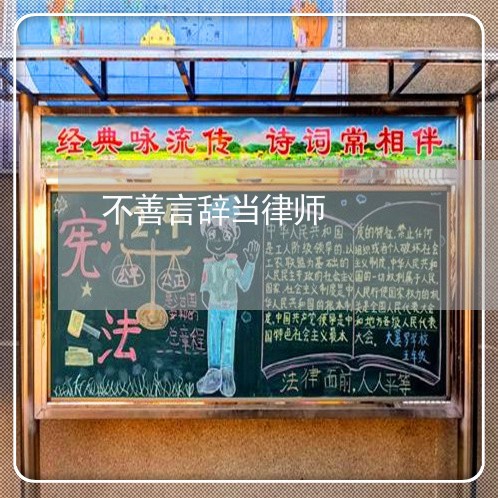 经典咏流传 诗词常相伴
不善言辞当律师
宪
法
公平
公正
总章程
中华人民共和国
是工人阶级领导的,以
工农联盟为基础的
人民民主专政的社会主义
国家,社会主义制度是中
华人民共和国的根本制
度,中国共产党领导是中
国特色社会主义最本
质的特征,禁止任何
组织或者个人破坏社会
主义制度,中华人民共和
国的一切权利属于人民,
人民行使国家权力的机
关是全国人民代表大会
和地方各级人民代表
大会。
五年级
法律面前,人人平等